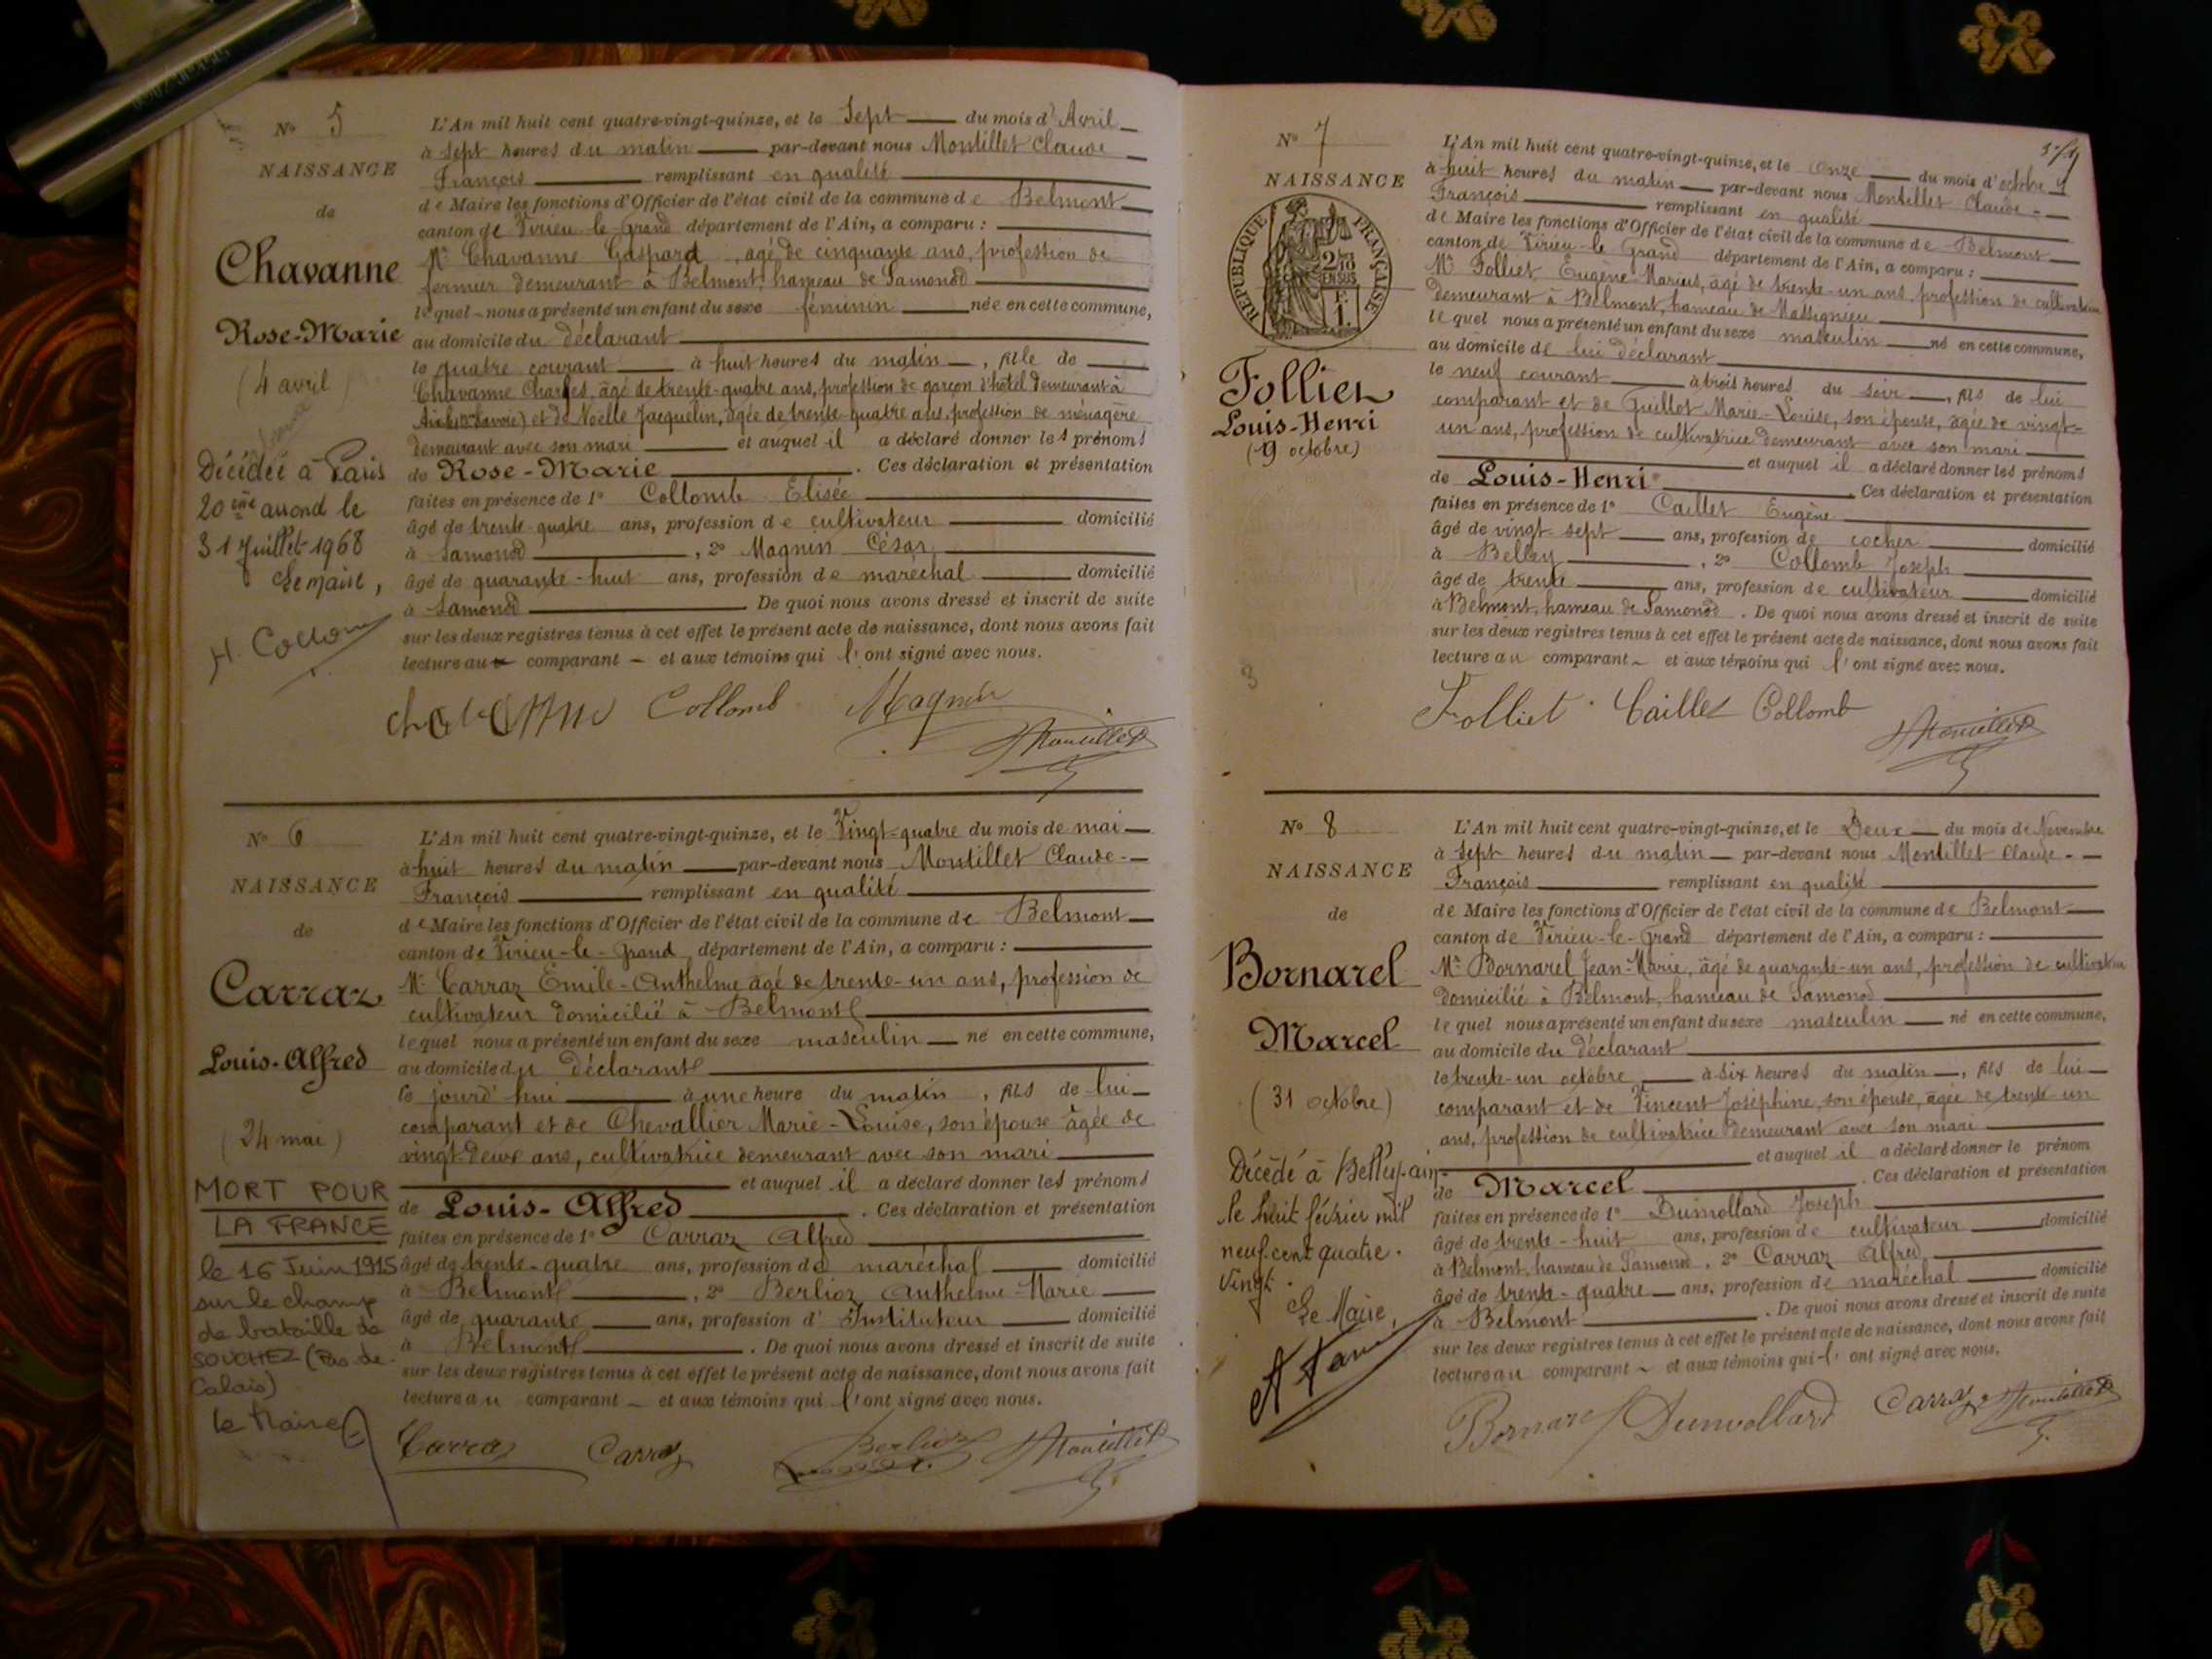 N° 5
NAISSANCE
de
Chavanne
Rose-Marie
(4 avril)
Décédée à Paris
20ème arrond le
31 Juillet 1968
Le Maire,
L'An mil huit cent quatre-vingt-quinze, et le Sept du mois d'Avril
à sept heures du matin par-devant nous Montillet Claude
François remplissant en qualité
de Maire les fonctions d'Officier de l'état civil de la commune de Belmont
canton de Virieu-le-Grand département de l'Ain, a comparu :
Mr Chavanne Gaspard, âgé de cinquante ans, profession de
fermier demeurant à Belmont, hameau de Samonod
lequel nous a présenté un enfant du sexe féminin née en cette commune,
au domicile du déclarant
le quatre courant à huit heures du matin, fille de
Chavanne Charles, âgé de trente-quatre ans, profession de garçon d'hôtel demeurant à
Aix-les- (Savoie) et de Noëlle Jacquelin, âgée de trente-quatre ans, profession de ménagère
demeurant avec son mari et auquel il a déclaré donner les prénoms
de Rose-Marie. Ces déclaration et présentation
faites en présence de 1° Collomb Elisée
âgé de trente-quatre ans, profession de cultivateur domicilié
à Samonod, 2° Magnin César
âgé de quarante-huit ans, profession de maréchal domicilié
à Samonod De quoi nous avons dressé et inscrit de suite
sur les deux registres tenus à cet effet le présent acte de naissance, dont nous avons fait
lecture au comparant et aux témoins qui l'ont signé avec nous.
Chavanne Collomb Magnin
Montillet
N° 6
NAISSANCE
de
Carraz
Louis-Alfred
(24 mai)
MORT POUR
LA FRANCE
le 16 Juin 1915
sur le champ
de bataille de
SOUCHEZ (Pas-de-
Calais)
le Maire
L'An mil huit cent quatre-vingt-quinze, et le Vingt-quatre du mois de mai
à huit heures du matin par-devant nous Montillet Claude-
François remplissant en qualité
de Maire les fonctions d'Officier de l'état civil de la commune de Belmont
canton de Virieu-le-Grand, département de l'Ain, a comparu :
Mr Carraz Emile-Anthelme âgé de trente-un ans, profession de
cultivateur domicilié à Belmont
lequel nous a présenté un enfant du sexe masculin né en cette commune,
au domicile du déclarant
le jourd'hui à une heure du matin, fils de lui
comparant et de Chevallier Marie-Louise, son épouse âgée de
vingt-deux ans, cultivatrice demeurant avec son mari
et auquel il a déclaré donner les prénoms
de Louis-Alfred. Ces déclaration et présentation
faites en présence de 1° Carraz Alfred
âgé de trente-quatre ans, profession de maréchal domicilié
à Belmont, 2° Berlioz Anthelme-Marie
âgé de quarante ans, profession d'Instituteur domicilié
à Belmont. De quoi nous avons dressé et inscrit de suite
sur les deux registres tenus à cet effet le présent acte de naissance, dont nous avons fait
lecture au comparant et aux témoins qui l'ont signé avec nous.
Carraz Carraz Berlioz Montillet
N° 7
NAISSANCE
RÉPUBLIQUE FRANÇAISE
2/10 EN SUS
Folliet
Louis-Henri
(9 octobre)
L'An mil huit cent quatre-vingt-quinze, et le onze du mois d'octobre
à huit heures du matin par-devant nous Montillet Claude-
François remplissant en qualité
de Maire les fonctions d'Officier de l'état civil de la commune de Belmont
canton de Virieu-le-Grand département de l'Ain, a comparu :
Mr Folliet Eugène-Marius, âgé de trente-un ans, profession de cultivateur
demeurant à Belmont, hameau de Massignieu
lequel nous a présenté un enfant du sexe masculin né en cette commune,
au domicile de lui déclarant
le neuf courant à trois heures du soir, fils de lui
comparant et de Guillot Marie-Louise, son épouse, âgée de vingt-
un ans, profession de cultivatrice demeurant avec son mari
et auquel il a déclaré donner les prénoms
de Louis-Henri. Ces déclaration et présentation
faites en présence de 1° Caillet Eugène
âgé de vingt-sept ans, profession de cocher domicilié
à Belley, 2° Collomb Joseph
âgé de trente ans, profession de cultivateur domicilié
à Belmont, hameau de Samonod. De quoi nous avons dressé et inscrit de suite
sur les deux registres tenus à cet effet le présent acte de naissance, dont nous avons fait
lecture au comparant et aux témoins qui l'ont signé avec nous.
Folliet Caillet Collomb
Montillet
N° 8
NAISSANCE
de
Bornarel
Marcel
(31 octobre)
Décédé à Belley-ain
le huit février mil
neuf cent quatre-
vingt.
Le Maire,
L'An mil huit cent quatre-vingt-quinze, et le Deux du mois de Novembre
à sept heures du matin par-devant nous Montillet Claude-
François remplissant en qualité
de Maire les fonctions d'Officier de l'état civil de la commune de Belmont
canton de Virieu-le-Grand département de l'Ain, a comparu :
Mr Bornarel Jean-Marie, âgé de quarante-un ans, profession de cultivateur
domicilié à Belmont, hameau de Samonod
lequel nous a présenté un enfant du sexe masculin né en cette commune,
au domicile du déclarant
le trente-un octobre à six heures du matin, fils de lui
comparant et de Vincent Joséphine, son épouse, âgée de trente un
ans, profession de cultivatrice demeurant avec son mari
et auquel il a déclaré donner le prénom
de Marcel. Ces déclaration et présentation
faites en présence de 1° Dumollard Joseph
âgé de trente-huit ans, profession de cultivateur domicilié
à Belmont, hameau de Samonod, 2° Carraz Alfred
âgé de trente-quatre ans, profession de maréchal domicilié
à Belmont. De quoi nous avons dressé et inscrit de suite
sur les deux registres tenus à cet effet le présent acte de naissance, dont nous avons fait
lecture au comparant et aux témoins qui l'ont signé avec nous.
Bornarel Dumollard Carraz Montillet